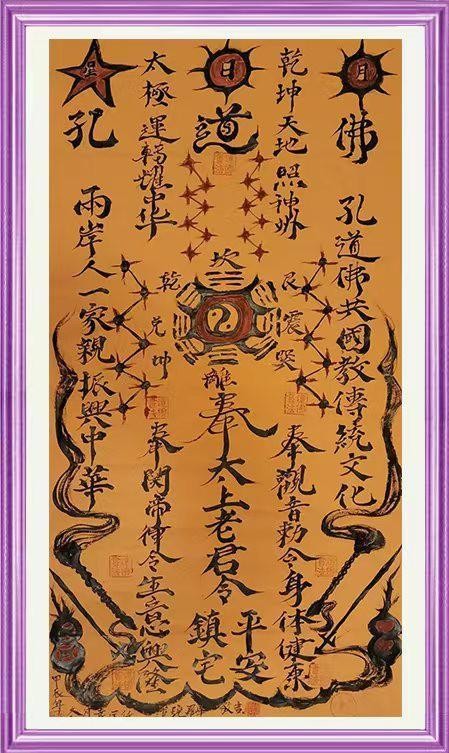 月
佛
孔道佛共國教傳統文化
乾坤天地照神州
日
道
太極運轉耀中华
星
孔
兩岸人一家親振興中華
坎
艮震巽
乾兌坤
離
奉觀音勅令身体健康
奉太上老君令
平安
鎮宅
奉関帝律令生意興隆
甲辰年